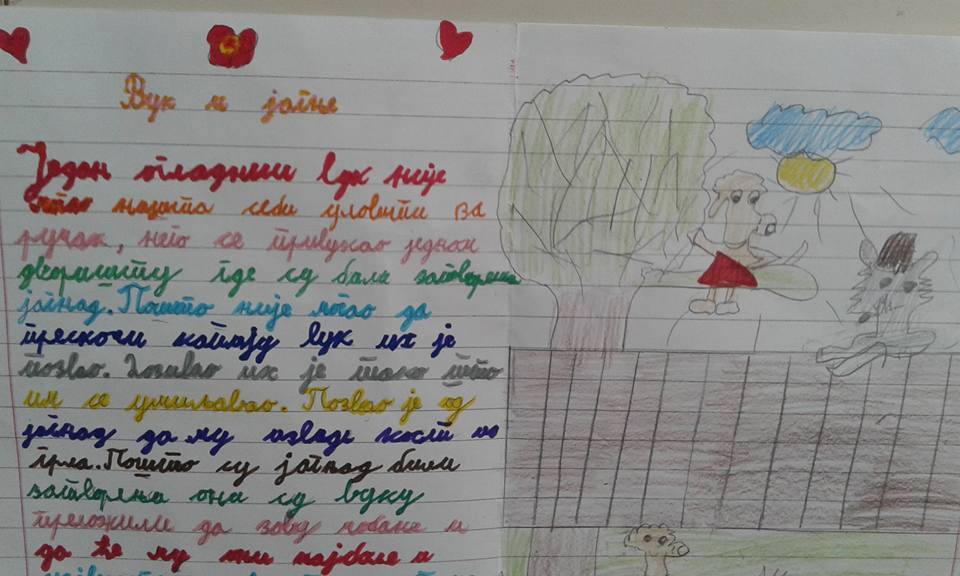 Вук и јагње
Један гладни вук није
могао ништа себи уловити за
ручак, него се привукао једном
дворишту где су била затворена
јагњад. Пошто није могао да
прескочи капију вук их је
позвао. Позивао их је тако што
им се умиљавао. Позвао је од
јагњад да му изваде кост из
грла. Пошто су јагњад били
затворења она су вуку
преложили да зову чобане и
да ће му они најбоље и